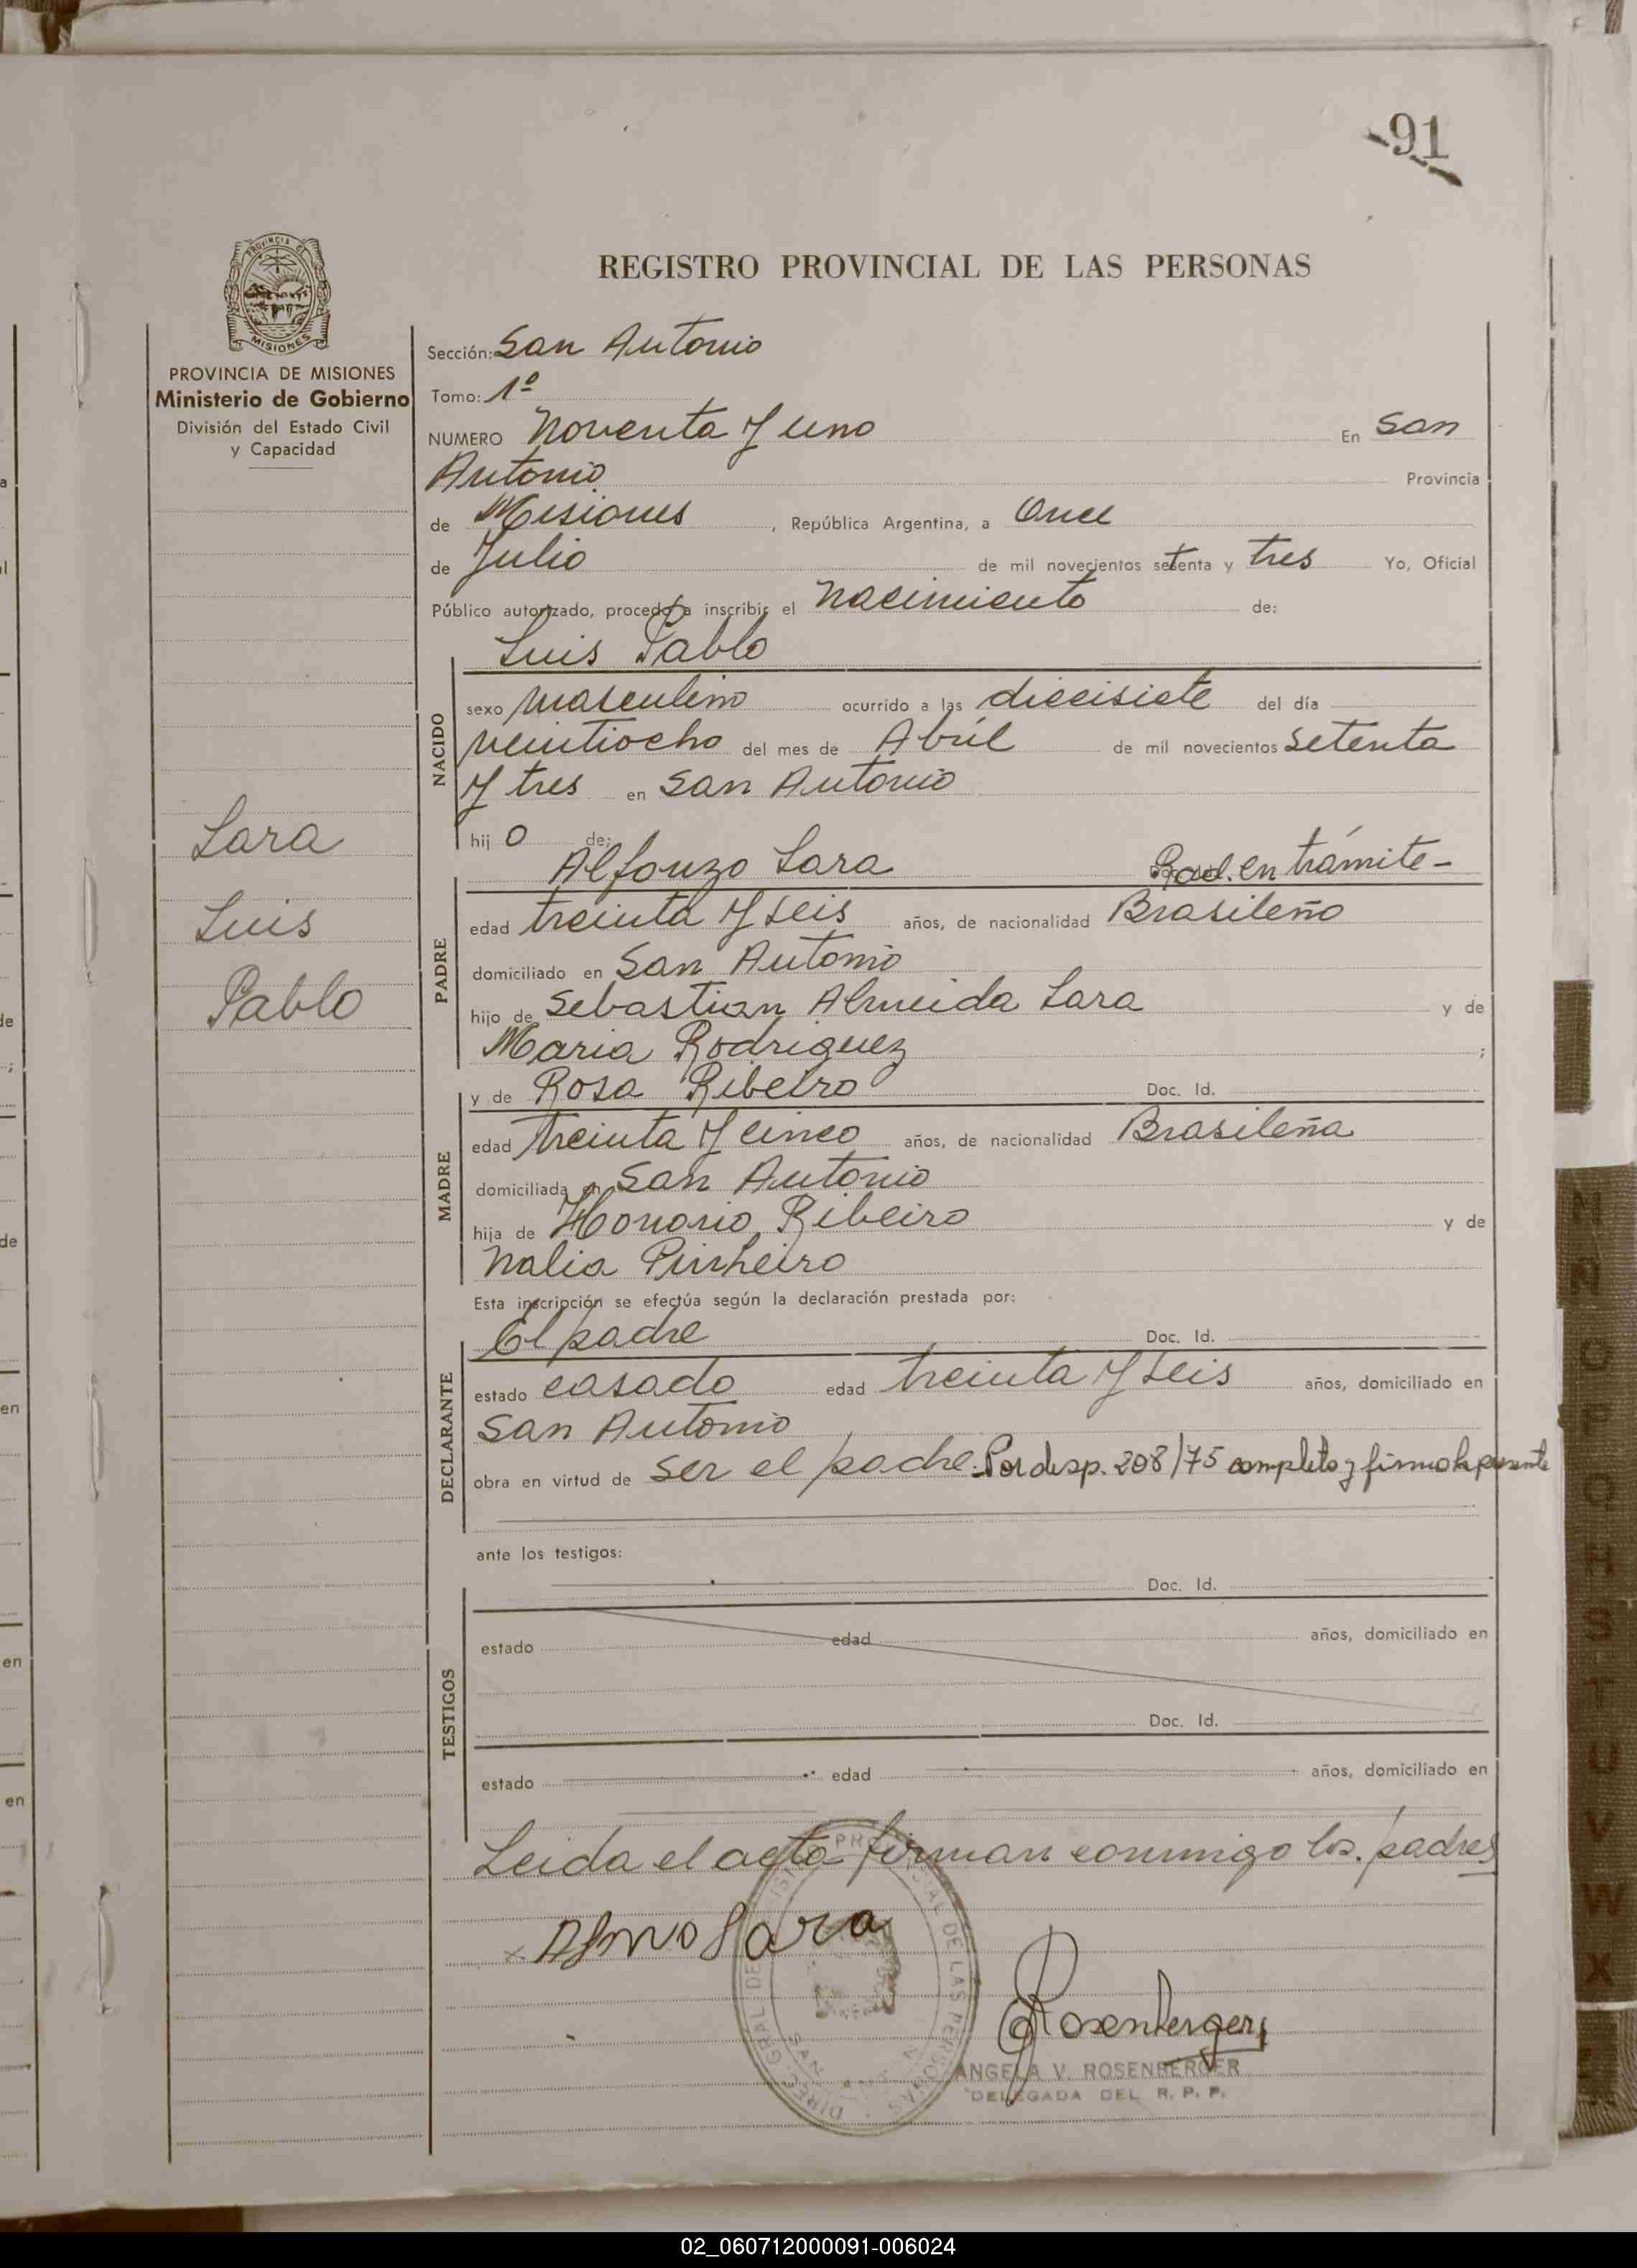 91
REGISTRO PROVINCIAL DE LAS PERSONAS
PROVINCIA DE
MISIONES
PROVINCIA DE MISIONES
Ministerio de Gobierno
División del Estado Civil
y Capacidad
Lara
Luis
Pablo
Sección: San Antonio
Tomo: 1º
NUMERO Noventa y uno En San
Antonio Provincia
de Misiones, República Argentina, a Once
de Julio de mil novecientos setenta y tres Yo, Oficial
Público autorizado, procedo a inscribir el nacimiento de:
Luis Pablo
NACIDO
sexo masculino ocurrido a las diecisiete del día
veintiocho del mes de Abril de mil novecientos setenta
y tres en San Antonio
hijo de:
Alfonzo Lara Rad. en trámite-
PADRE
edad treinta y seis años, de nacionalidad Brasileño
domiciliado en San Antonio
hijo de Sebastian Almeida Lara y de
Maria Rodriguez ;
y de Rosa Ribeiro Doc. Id.
MADRE
edad treinta y cinco años, de nacionalidad Brasileña
domiciliada en San Antonio
hija de Honorio Ribeiro y de
Nalia Pinheiro
Esta inscripción se efectúa según la declaración prestada por:
El padre Doc. Id.
DECLARANTE
estado casado edad treinta y seis años, domiciliado en
San Antonio
obra en virtud de ser el padre. Por desp. 208/75 completo y firmo la presente
ante los testigos:
Doc. Id.
TESTIGOS
estado edad años, domiciliado en
Doc. Id.
estado edad años, domiciliado en
Leida el acta firman conmigo los padres
x Lara
Rosenberger
ANGELA V. ROSENBERGER
DELEGADA DEL R. P. P.
02_060712000091-006024